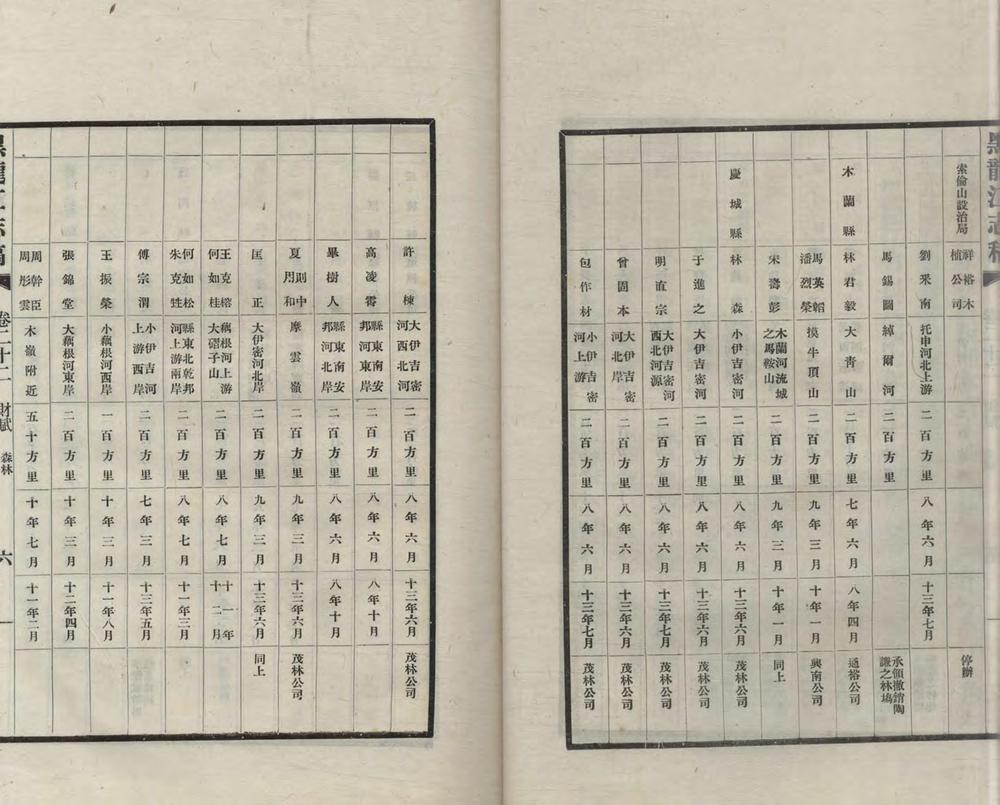 黑龍江志稿
索倫山設治局 祥裕木植公司 停辦
劉釆南 托申河北上游 二百方里 八年六月 十三年七月
馬錫圖 綽爾河 二百方里 承領撤銷陶謙之林塲
木蘭縣 林君毅 大靑山 二百方里 七年六月 八年四月 通裕公司
馬英韜 潘烈榮 摸牛頂山 二百方里 九年三月 十年一月 興南公司
宋壽彭 木蘭河流域之馬鞍山 二百方里 九年三月 十年一月 同上
慶城縣 林森 小伊吉密河 二百方里 八年六月 十三年六月 茂林公司
于進之 大伊吉密河 二百方里 八年六月 十三年六月 茂林公司
明直宗 大伊吉密河西北河源 二百方里 八年六月 十三年七月 茂林公司
曾固本 大伊吉密河北岸 二百方里 八年六月 十三年六月 茂林公司
包作材 小伊吉密河上游 二百方里 八年六月 十三年七月 茂林公司
許棟 大伊吉密河西北河 二百方里 八年六月 十三年六月 茂林公司
高凌霄 縣東南安邦河東岸 二百方里 八年六月 八年十月
畢樹人 縣東南安邦河北岸 二百方里 八年六月 八年十月
夏則中 周和 摩雲嶺 二百方里 九年三月 十三年六月 茂林公司
匡正 大伊密河北岸 二百方里 九年三月 十三年六月 同上
王克榕 何如桂 藕根河上游大磖子山 二百方里 八年七月 十一年十二月
何如松 朱克甡 縣東北乾邦河上游兩岸 二百方里 八年七月 十一年三月
傅宗渭 小伊吉河上游西岸 二百方里 七年三月 十三年五月
王振榮 小藕根河西岸 一百方里 十年三月 十一年八月
張錦堂 大藕根河東岸 二百方里 十年三月 十二年四月
周幹臣 周彤雲 木嶺附近 五十方里 十年七月 十一年二月
黑龍江志稿 卷二十二 財賦 森林 六